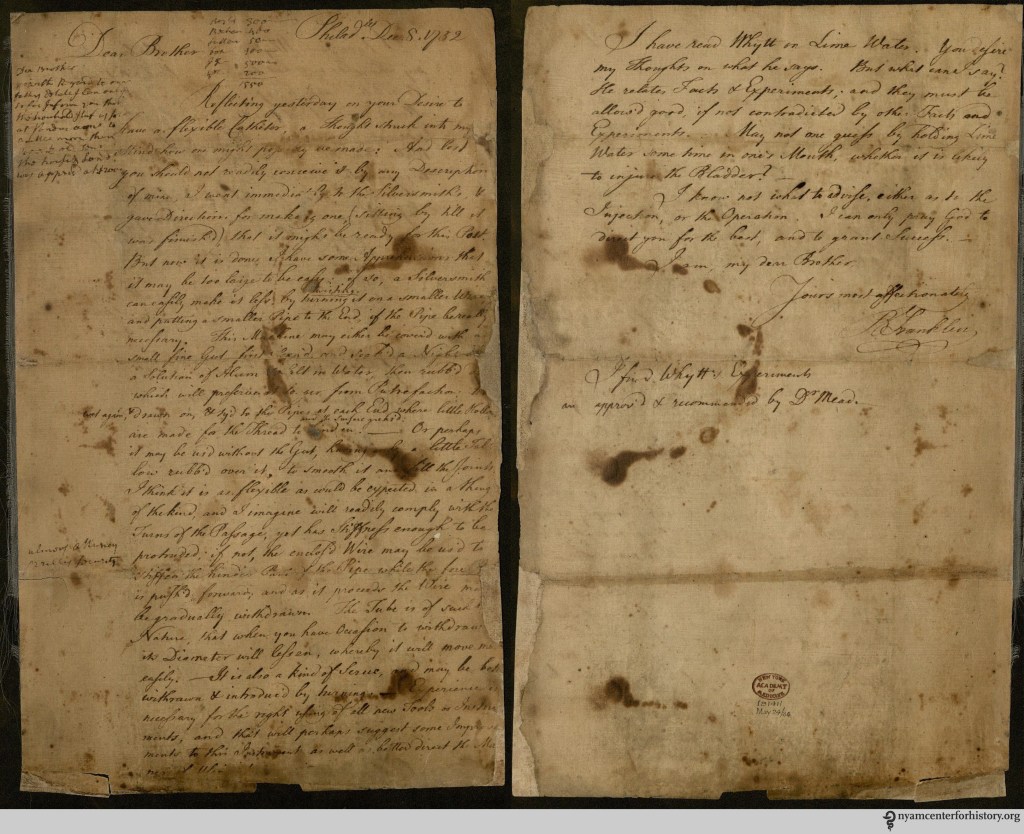 Philad.a Dec 8. 1752
Dear Brother
Reflecting yesterday on your Desire to
have a flexible Catheter, a Thought struck into my
Mind how one might be made: And lest
you should not readily conceive it by any Description
of mine, I went immediately to the Silversmith's &
gave Directions for making one, (sitting by till it
was finish'd) that it might be ready for this Post.
But now it is done I have some Apprehensions that
it may be too large to be easy: if so, a Silversmith
can easily make it less by turning it on a smaller Wire
and putting a smaller Pipe to the End, if the Pipe be really
necessary. This Machine may either be cover'd with a
small fine Gut first clean'd and soak'd a Night in
a Solution of Alum & Salt in Water, then rubb'd
which will preserve it from Putrefaction:
& ty'd to the Pipes at each End, where little Hollows
are made for the Thread to bind in.
Or perhaps
it may be used without the Gut, having only a little Tal-
low rubb'd over it, to smooth it and fill the Joints.
I think it is as flexible as would be expected in a thing
of the kind, and I imagine will readily comply with the
Turns of the Passage, yet has Stiffness enough to be
protruded; if not, the enclos'd Wire may be us'd to
stiffen the hinder Part of the Pipe while the fore
is push'd forward; and as it proceeds the Wire may
be gradually withdrawn. The Tube is of such a
Nature, that when you have Occasion to withdraw
its Diameter will lessen, whereby it will move more
easily. — It is also a kind of Screw, and may be both
withdrawn & introduc'd by turning. Experience is
necessary for the right using of all new Tools or Instru-
ments, and that will perhaps suggest some Improve-
ments to this Instrument as well as better direct the Man-
I have read Whytt on Lime Water. You desire
my Thoughts on what he says. But what can I say?
He relates Facts & Experiments; and they must be
allow'd good, if not contradicted by other Facts and
Experiments. May not one guess by holding Lime
Water some time in one's Mouth, whether it is likely
to injure the Bladder?
I know not what to advise, either as to the
Injection, or the Operation. I can only pray God to
direct you for the best, and to grant Success.
I am, my dear Brother
Yours most affectionately
B Franklin
I find Whytt's Experiments
are approv'd & recommended by Dr Mead.
NEW YORK
ACADEMY
OF
MEDICINE
nyamcenterforhistory.org